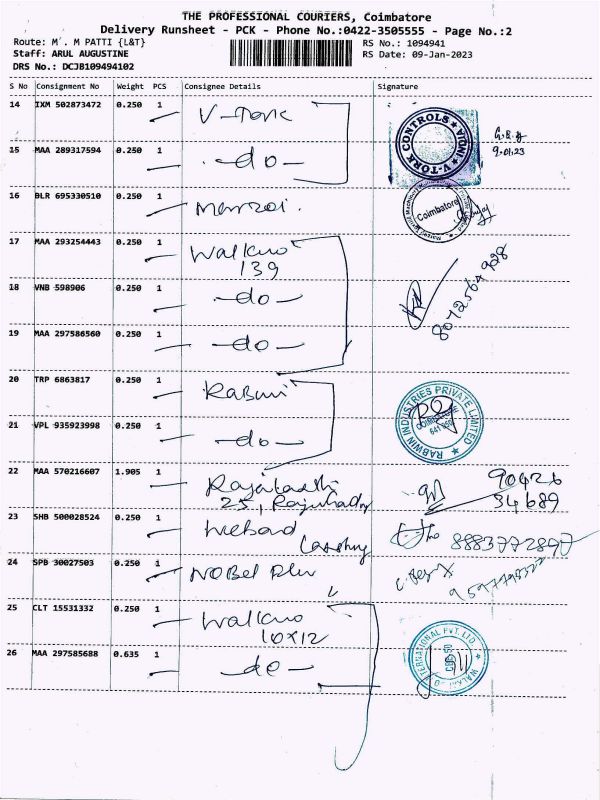 THE PROFESSIONAL COURIERS, Coimbatore
Delivery Runsheet - PCK - Phone No.:0422-3505555 - Page No.:2
Route: M'. M PATTI {L&T}
RS No.: 1094941
Staff: ARUL AUGUSTINE
RS Date: 09-Jan-2023
DRS No.: DCJB109494102
S No Consignment No Weight PCS Consignee Details Signature
14 IXM 502873472 0.250 1 V-Tork
V-TORK CONTROLS INDIA
9.01.23
15 MAA 289317594 0.250 1 -do-
16 BLR 695330510 0.250 1
Coimbatore
17 MAA 293254443 0.250 1 Walkno
139
18 VNB 598906 0.250 1 -do-
19 MAA 297586560 0.250 1 -do-
20 TRP 6863817 0.250 1
RABWIN INDUSTRIES PRIVATE LIMITED
COIMBATORE
21 VPL 935923998 0.250 1 -do-
22 MAA 570216607 1.905 1
25,
90426
34689
23 SHB 500028524 0.250 1
24 SPB 30027503 0.250 1 NOBEL
25 CLT 15531332 0.250 1 Walkno
10x12
26 MAA 297585688 0.635 1 -do-
INTERNATIONAL PVT. LTD.